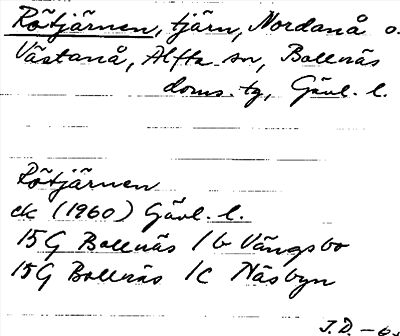 Rötjärnen, tjärn, Nordanå o.
Västanå, Alfta sn, Bollnäs
doms. tg, Gävl. l.
Rötjärnen
ek (1960) Gävl. l.
15G Bollnäs 1b Vängsbo
15G Bollnäs 1c Näsbyn
J.D. -63